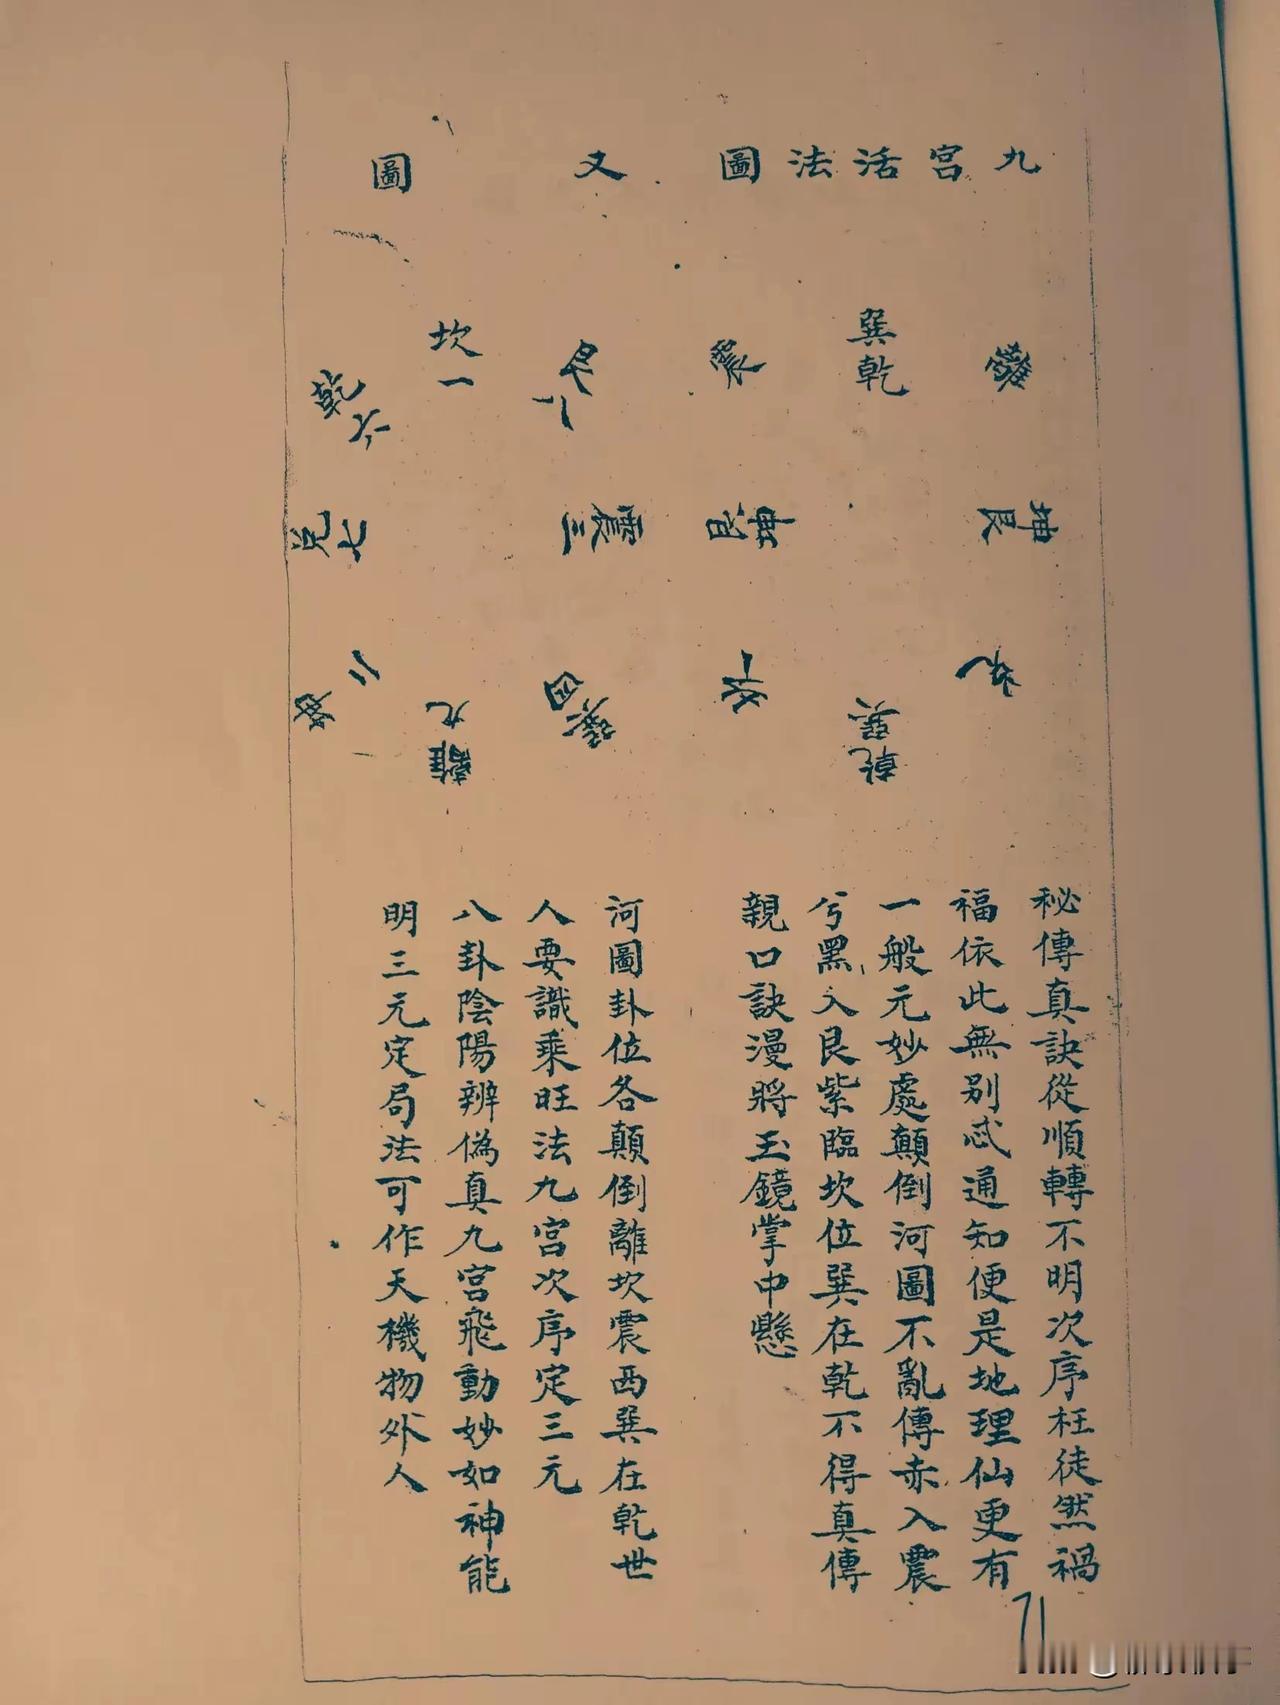 九宮活法圖
又圖
離
巽乾
震
坤艮
巽乾
艮八
坎一
乾六
震三
兌七
巽四
離九
坤二
秘傳真訣從順轉不明次序枉徒然禍
福依此無別忒通知便是地理仙更有
一般元妙處顛倒河圖不亂傳赤入震
兮黑入艮紫臨坎位巽在乾不得真傳
親口訣漫將玉鏡掌中懸
河圖卦位各顛倒離坎震西巽在乾世
人要識乘旺法九宮次序定三元
八卦陰陽辨偽真九宮飛動妙如神能
明三元定局法可作天機物外人
71